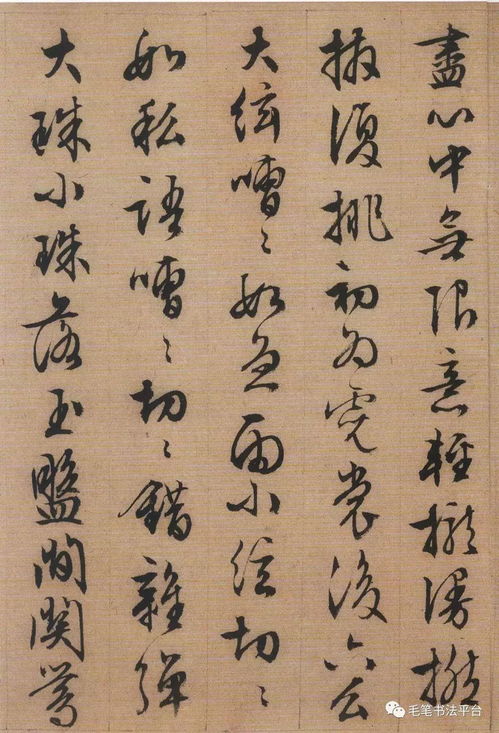 盡心中無限意輕攏漫撚
抹復挑初為霓裳後六么
大絃嘈〻如急雨小絃切〻
如私語嘈〻切〻錯雜彈
大珠小珠落玉盤間関鶯
毛笔书法平台